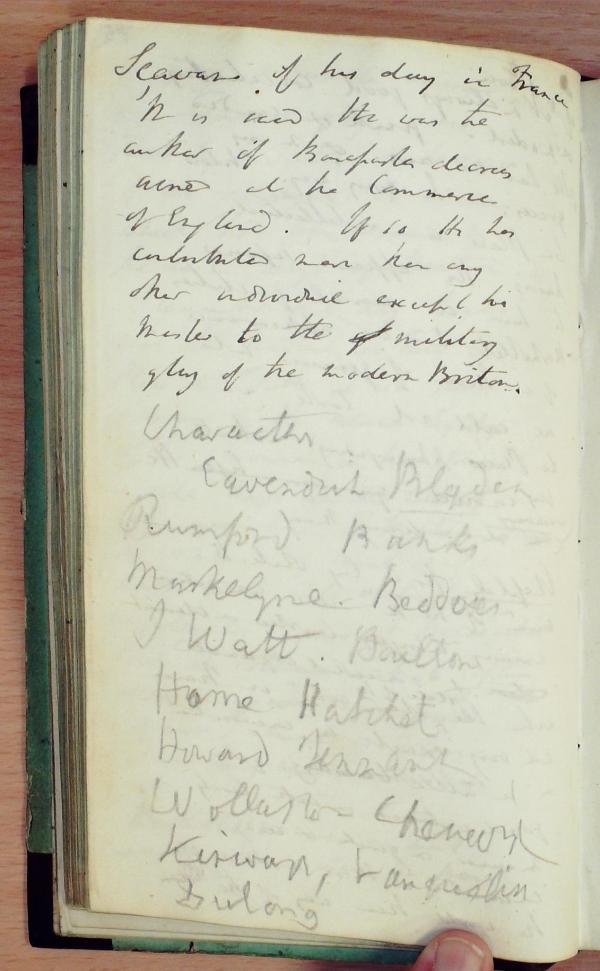 Savans of his day in France
It is said He was the
author of Bonapartes decrees
aimed at the Commerce
of England. If so He has
contributed more than any
other individual except his
Master to the military
glory of the modern Britons.
Characters
Cavendish Blagden
Rumford Banks
Maskelyne. Beddoes
J Watt. Boulton
Home Hatchet
Howard Tennant
Wollaston Chenevix
Kirwan, Vauquelin
Dulong